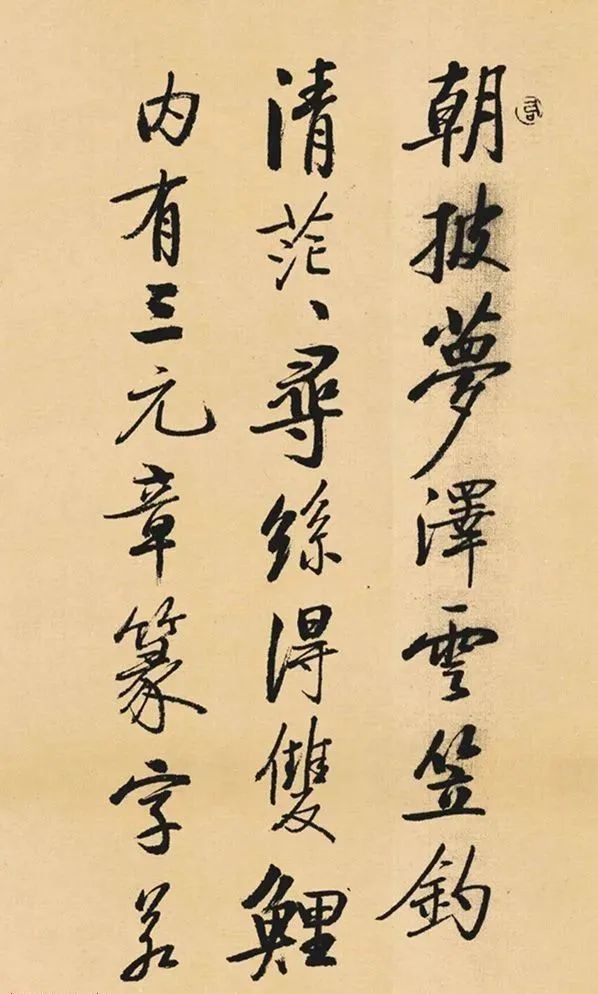 朝披夢澤雲笠釣
清茫、尋絲得雙鯉
内有三元章篆字若